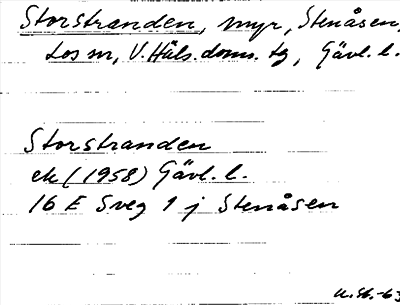 Storstranden, myr, Stenåsen,
Los sn, V. Häls. doms. tg, Gävl. l.
Storstranden
ek (1958) Gävl. l.
16 E Sveg 1 j Stenåsen
U.St.-63